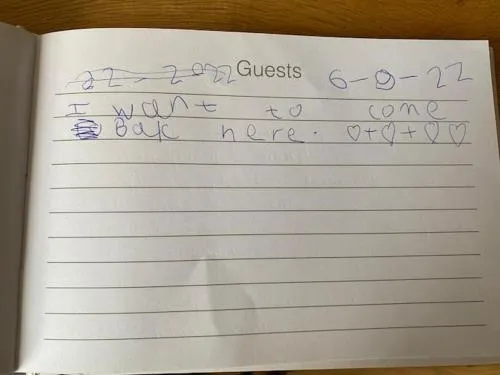 22 2022 Guests 6-9-22
I want to come
Bak here. ♡+♡+♡♡